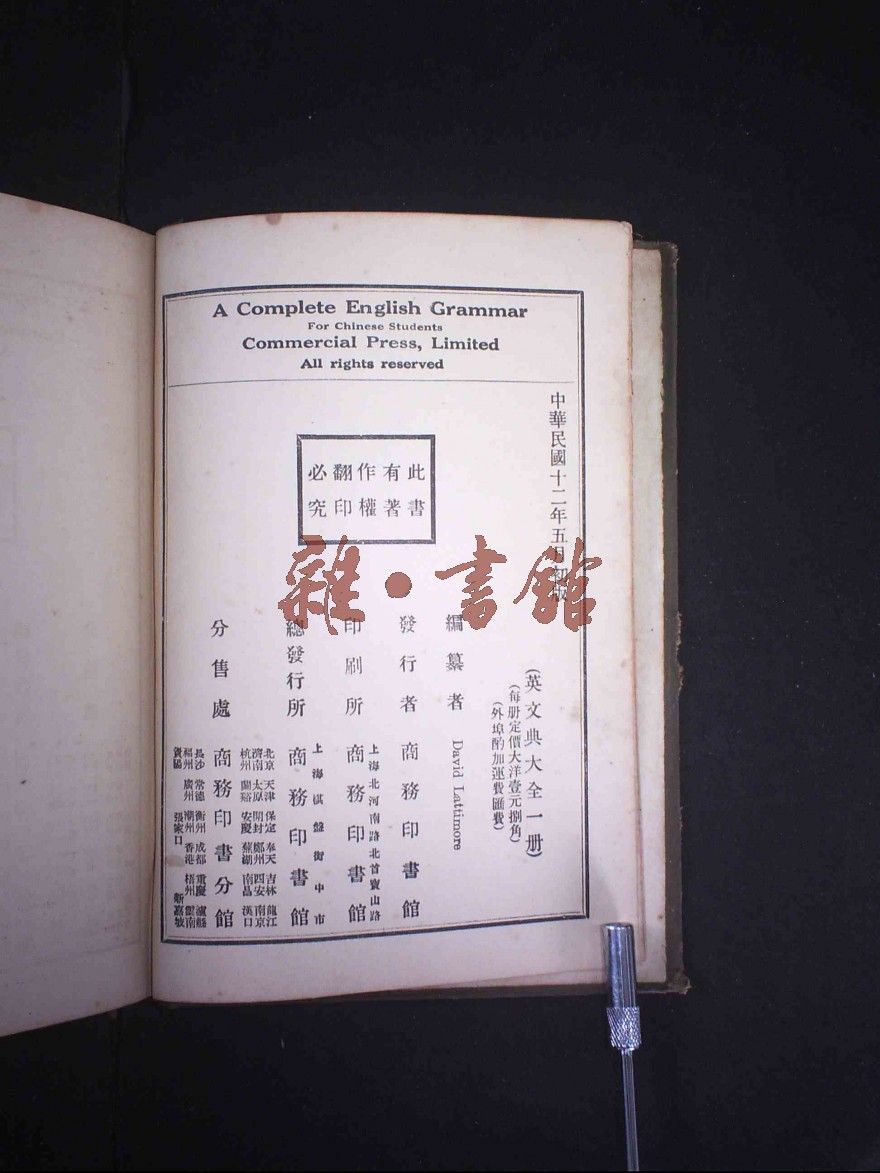 A Complete English Grammar
For Chinese Students
Commercial Press, Limited
All rights reserved
中華民國十二年五月初版
(英文典大全一册)
(每册定價大洋壹元捌角)
(外埠酌加運費匯費)
此書
有著
作權
翻印
必究
編纂者 David Lattimore
發行者 商務印書館
印刷所 上海北河南路北首寶山路 商務印書館
總發行所 上海棋盤街中市 商務印書館
分售處 北京 天津 保定 奉天 吉林 龍江
濟南 太原 開封 鄭州 西安 南京
杭州 蘭谿 安慶 蕪湖 南昌 漢口
商務印書分館
長沙 常德 衡州 成都 重慶 瀘縣
福州 廣州 潮州 香港 梧州 雲南
貴陽 張家口 新嘉坡
雜·書館